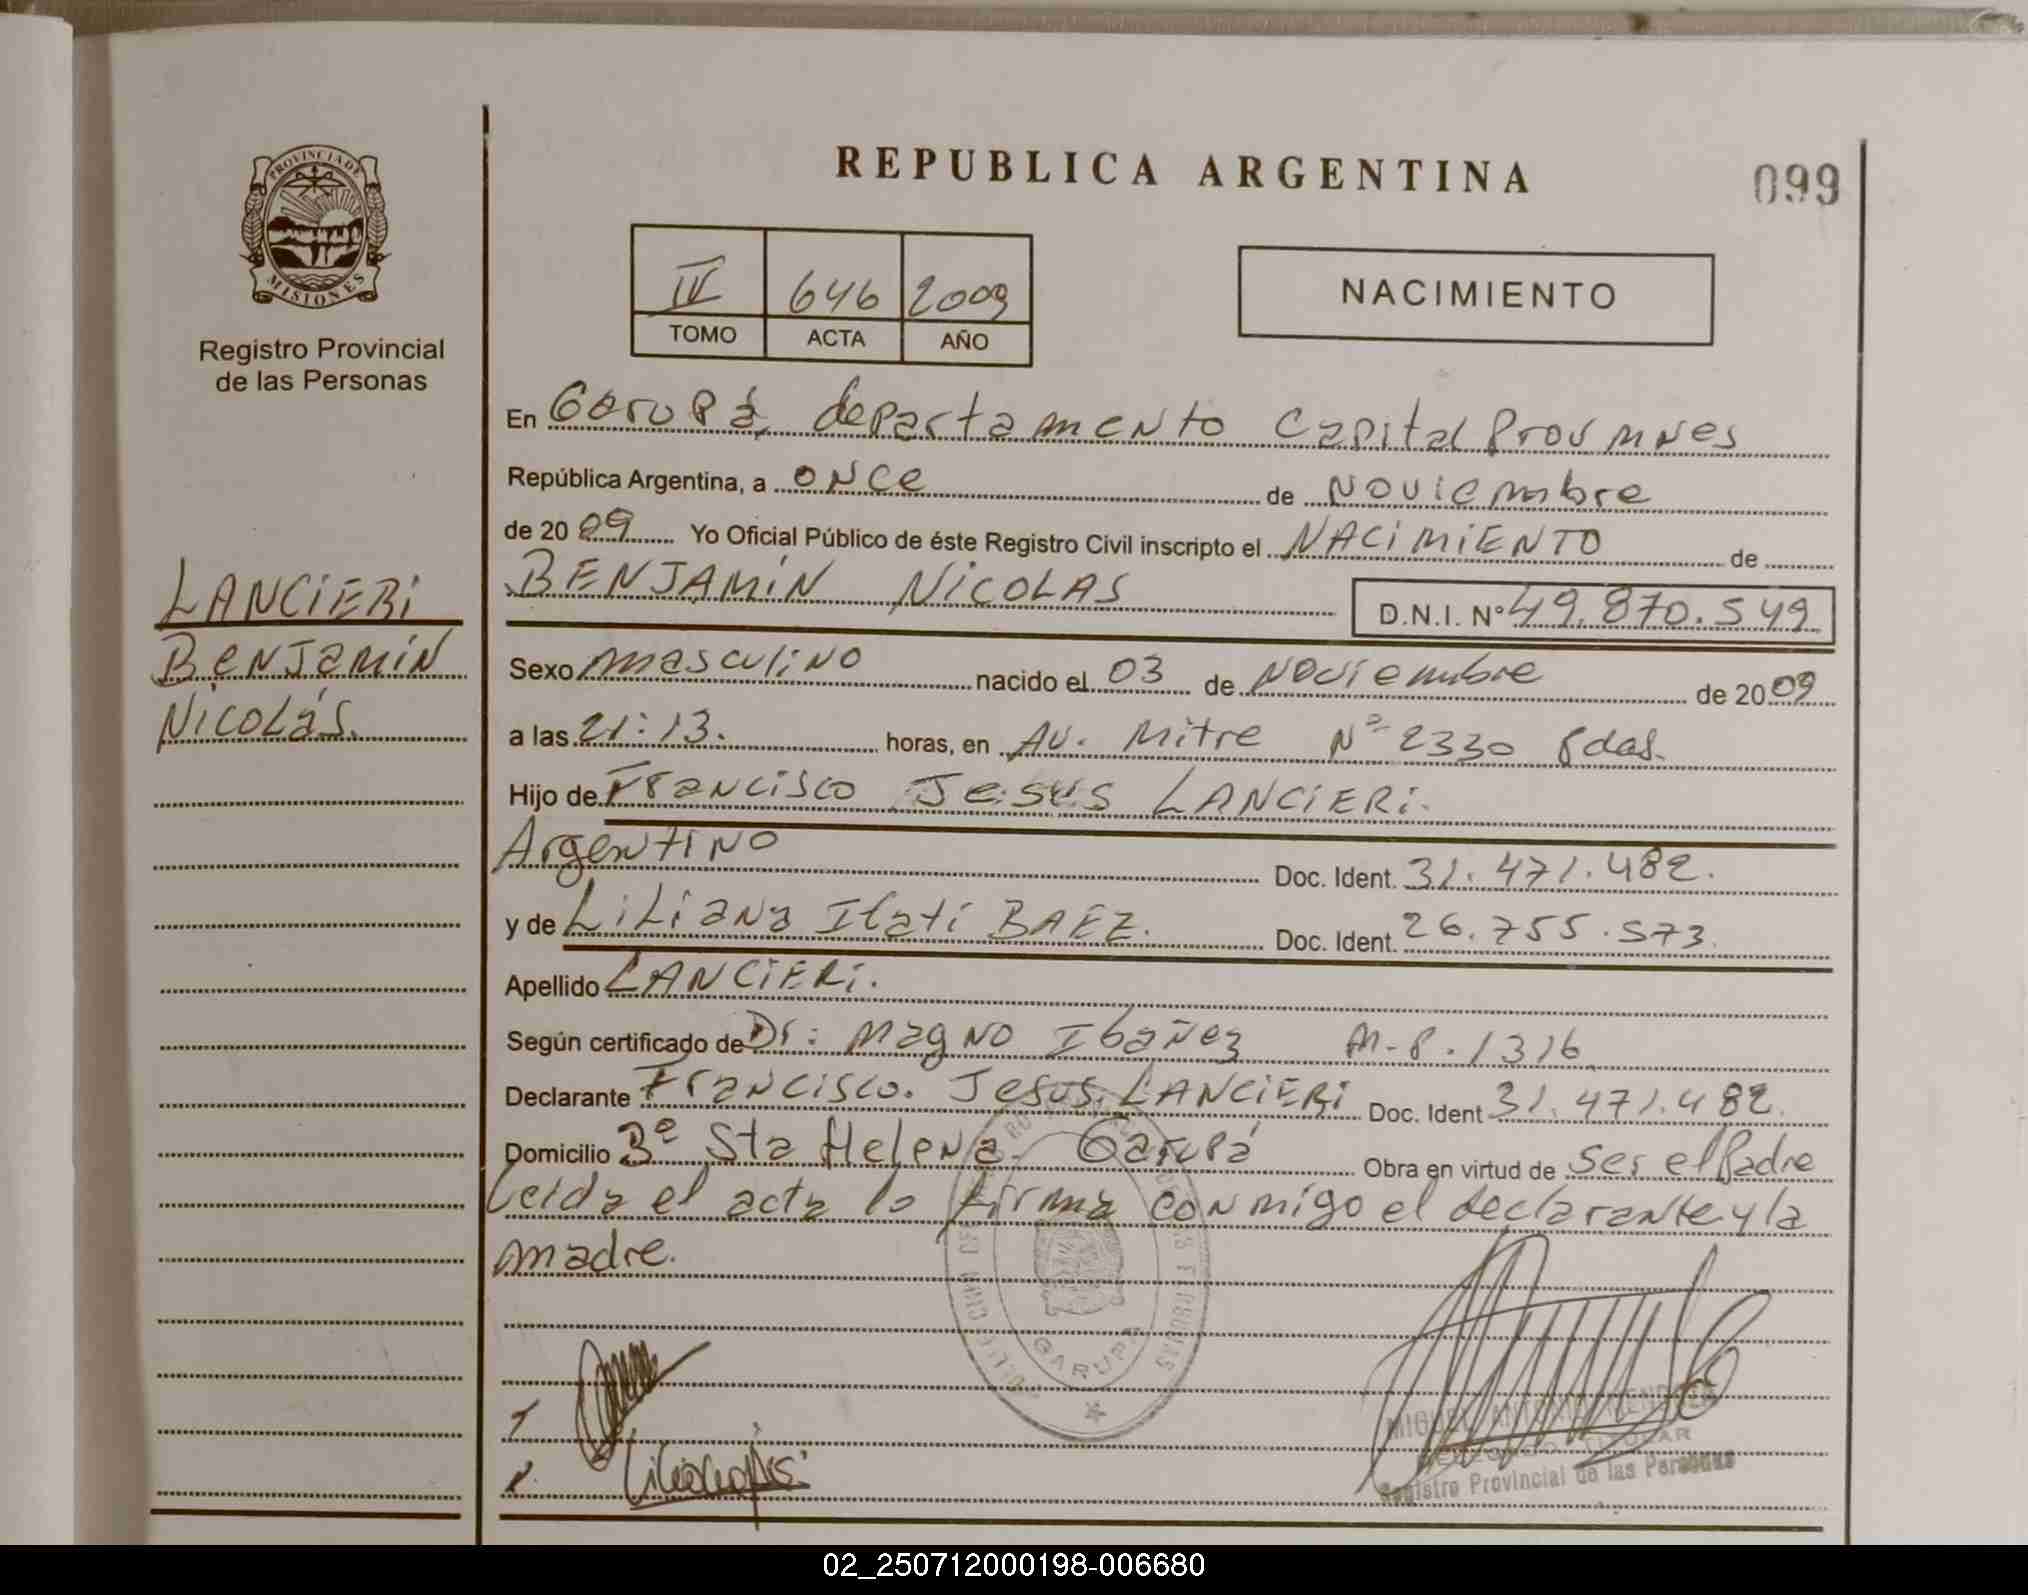 PROVINCIA DE
MISIONES
Registro Provincial
de las Personas
LANCIERI
BENJAMÍN
NICOLÁS.
REPUBLICA ARGENTINA
099
IV 646 2009
TOMO ACTA AÑO
NACIMIENTO
En Garupá, departamento Capital Prov Mnes
República Argentina, a once de noviembre
de 2009 Yo Oficial Público de éste Registro Civil inscripto el NACIMIENTO de
BENJAMÍN NICOLAS D.N.I. Nº 49.870.549
Sexo masculino nacido el 03 de Noviembre de 2009
a las 21:13. horas, en Av. Mitre Nº 2330 Pdas.
Hijo de Francisco Jesus LANCIERI.
Argentino Doc. Ident. 31.471.482.
y de Liliana Itatí BAEZ. Doc. Ident. 26.755.573.
Apellido LANCIERI.
Según certificado de Dr: Magno Ibañez M-P.1316
Declarante Francisco. Jesus. LANCIERI Doc. Ident 31.471.482.
Domicilio Bº Sta Helena- Garupá Obra en virtud de ser el Padre
Leida el acta la firma conmigo el declarante y la
madre.
GARUPA
MIGUEL ANTONIO MENDOZA
DELEGADO TITULAR
Registro Provincial de las Personas
02_250712000198-006680